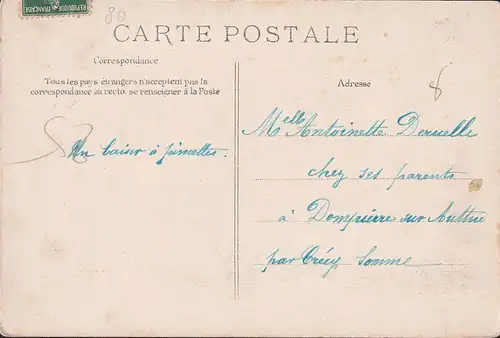 REPUBLIQUE FRANÇAISE
80
CARTE POSTALE
Correspondance
Tous les pays étrangers n'acceptent pas la
correspondance au recto: se renseigner à la Poste
Adresse
8
Un baiser à pincettes.
Melle Antoinette Deruelle
chez ses parents
à Dompierre sur Authie
par Crécy Somme